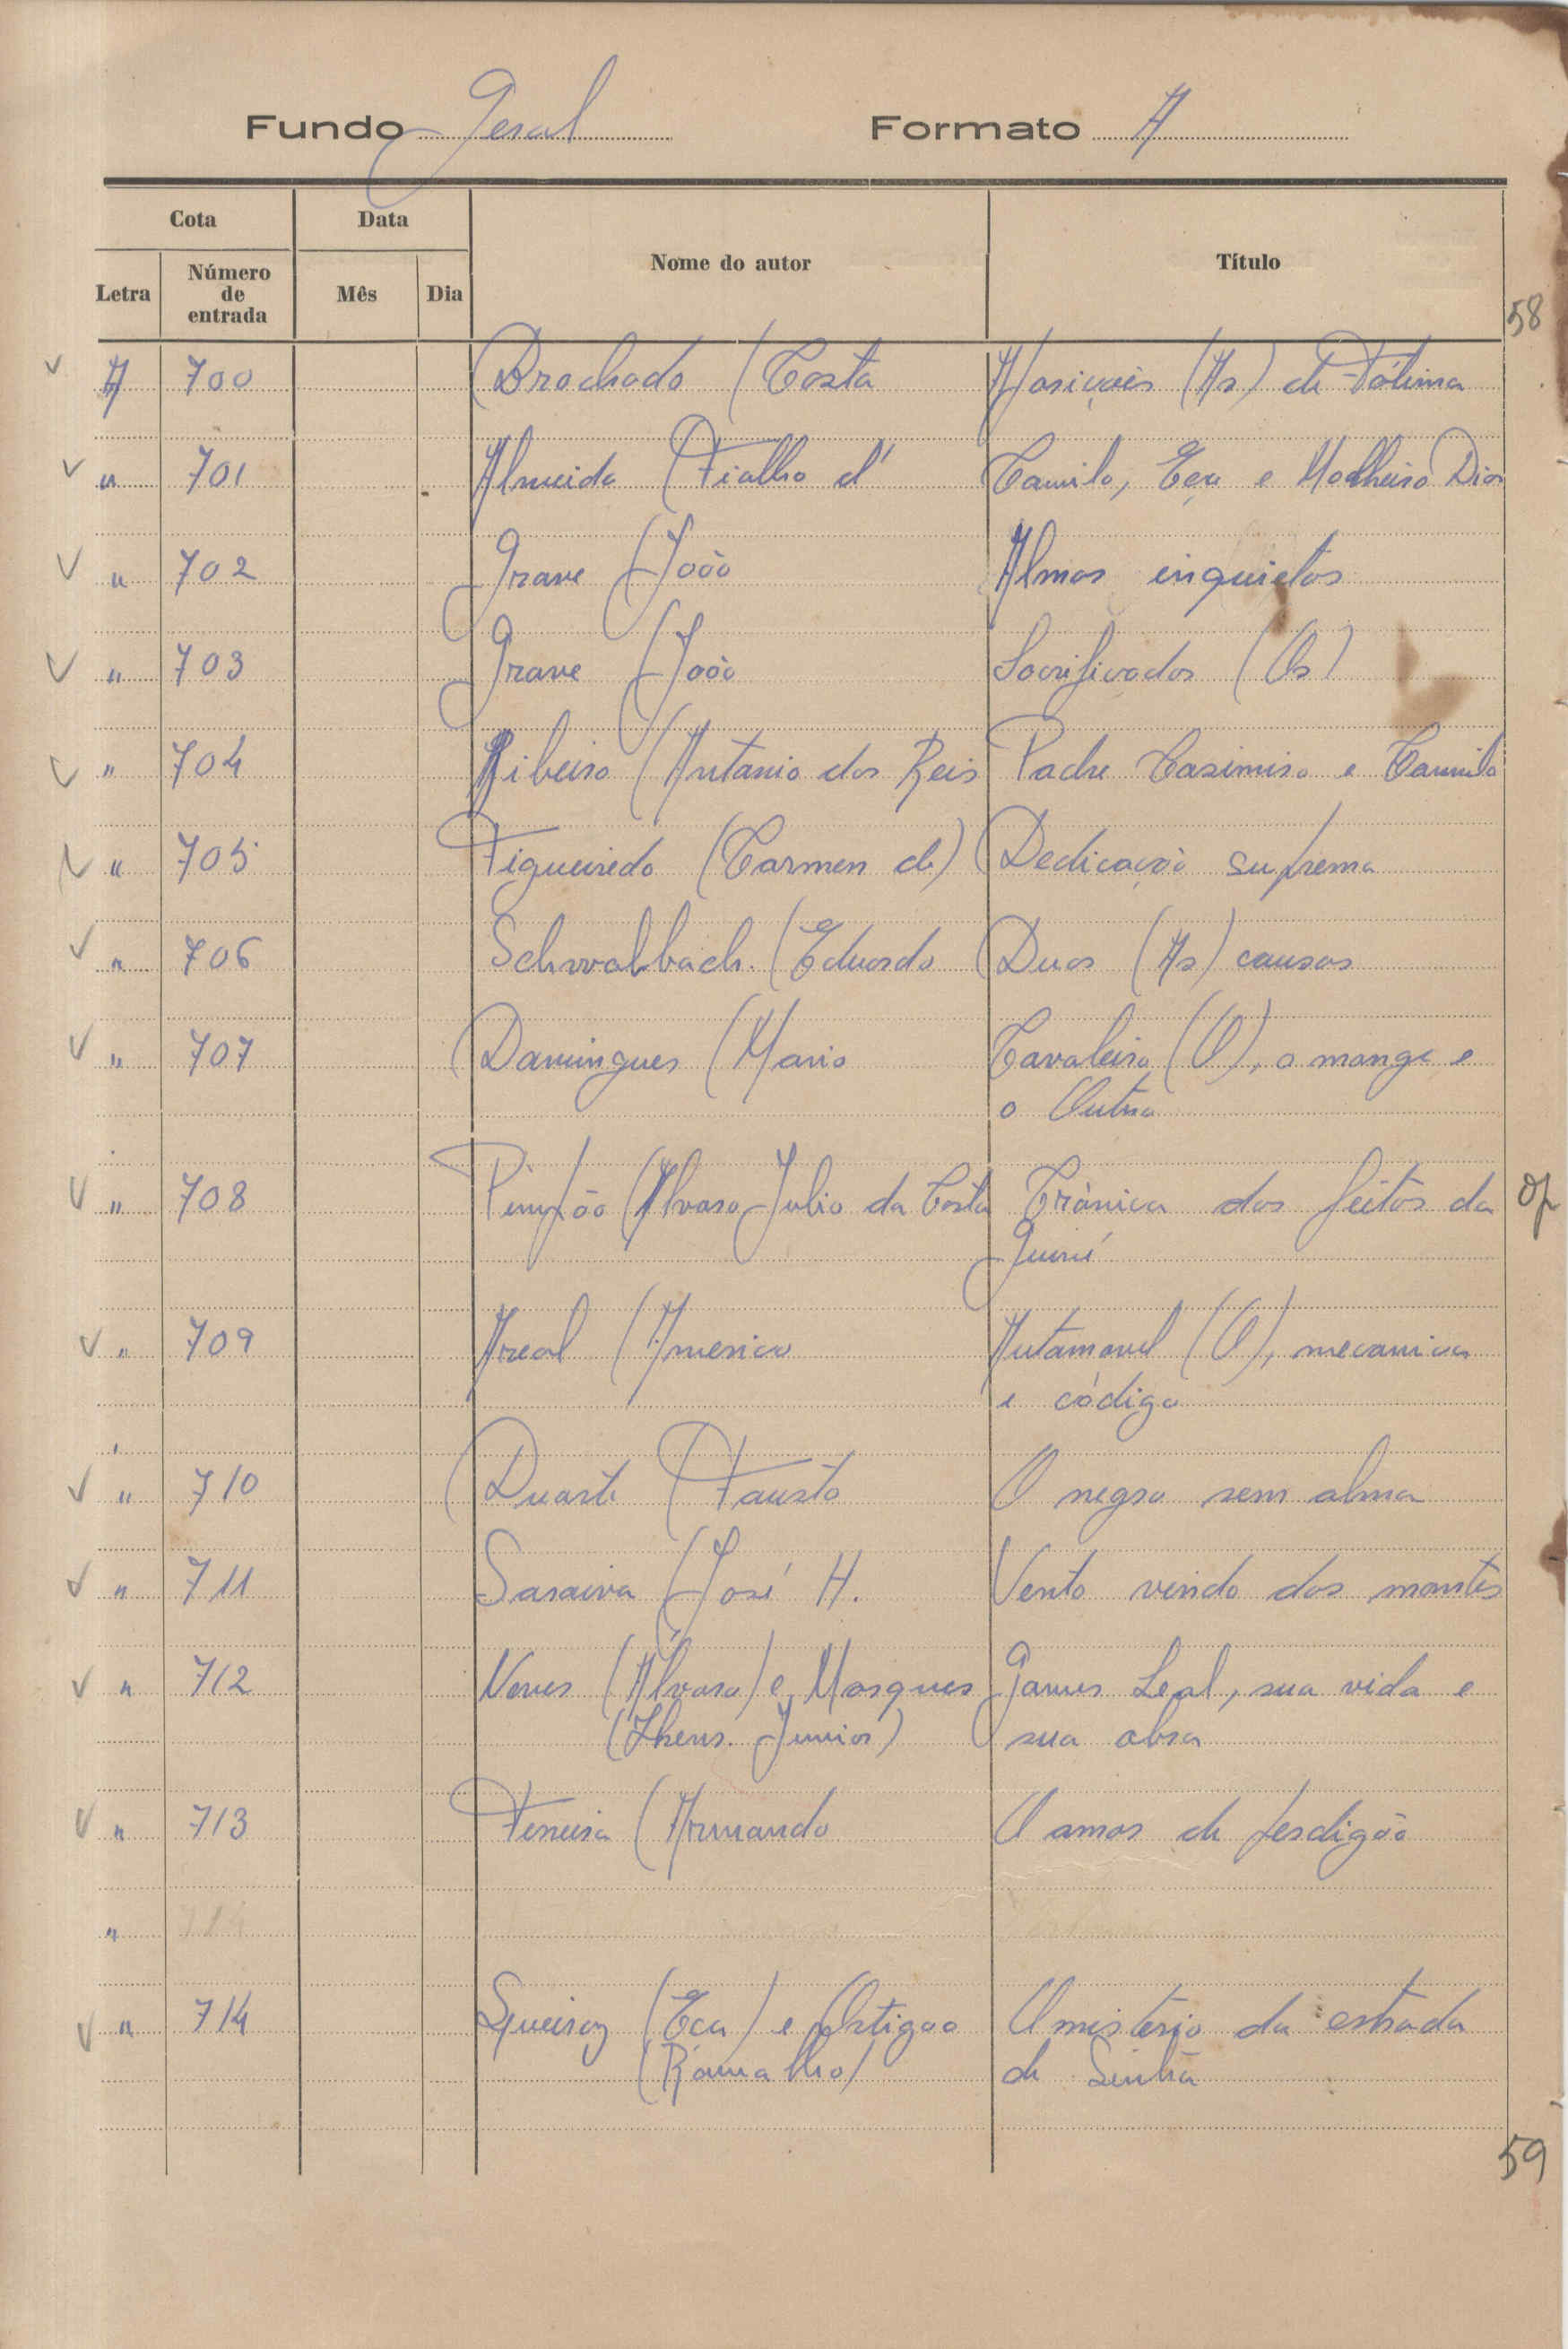 Fundo Geral Formato A
Cota Data Nome do autor Título
Letra Número de entrada Mês Dia
58
A 700 Brochado (Costa Aparições (As) de Fátima
" 701 Almeida (Fialho d' Camilo, Eça e Malheiro Dias
" 702 Grave (João Almas inquietas
" 703 Grave (João Sacrificados (Os)
" 704 Ribeiro (Antonio dos Reis Padre Casimiro e Camilo
" 705 Figueiredo (Carmen de) Dedicação suprema
" 706 Schwalbach. (Eduardo Duas (As) causas
" 707 Domingues (Mario Cavaleiro (O), o monge e
o Outro
" 708 Pimpão (Alvaro Julio da Costa Crónica dos feitos da
Guiné
" 709 Areal (Americo Automovel (O), mecanica
e código
" 710 Duarte (Fausto O negro sem alma
" 711 Saraiva (José H. Vento vindo dos montes
" 712 Neves (Álvaro) e Marques Gomes Leal, sua vida e
Junior) sua obra
" 713 Ferreira (Armando O amor de perdigão
"
" 714 Queiroz (Eça) e Ortigao O mistério da estrada
(Ramalho) de Sintra
59